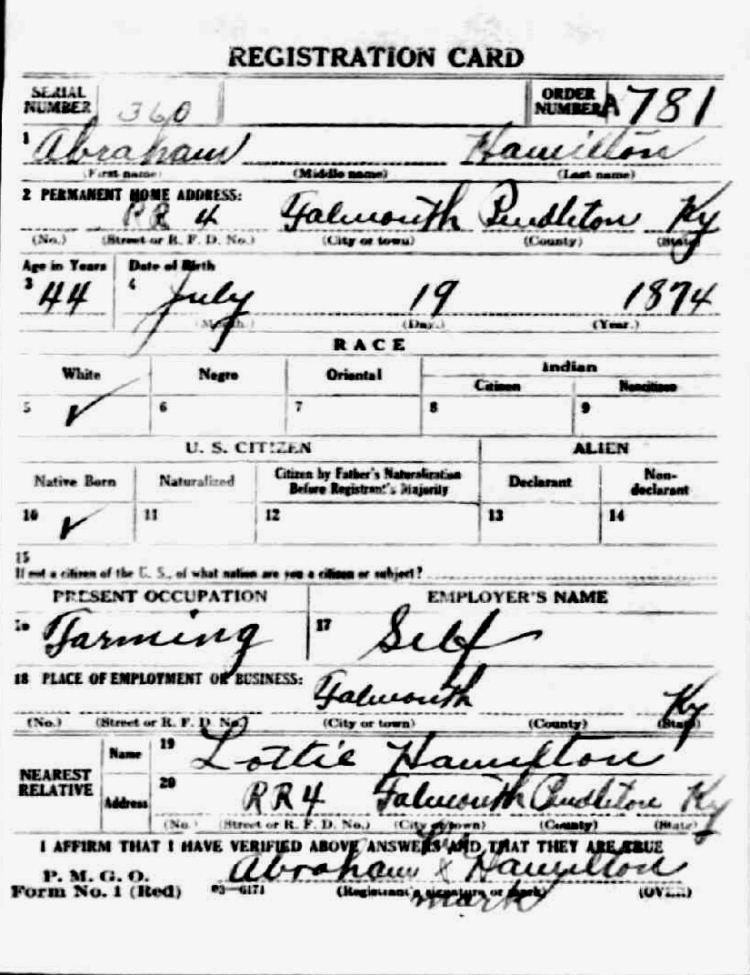 REGISTRATION CARD
SERIAL NUMBER 360 ORDER NUMBER A 781
1 Abraham Hamilton
(First name) (Middle name) (Last name)
2 PERMANENT HOME ADDRESS:
RR 4 Falmouth Pendleton Ky
(No.) (Street or R. F. D. No.) (City or town) (County) (State)
Age in Years Date of Birth
3 44 4 July 19 1874
(Month.) (Day.) (Year.)
RACE
White Negro Oriental Indian
Citizen Noncitizen
5 ✓ 6 7 8 9
U. S. CITIZEN ALIEN
Native Born Naturalized Citizen by Father's Naturalization Before Registrant's Majority Declarant Non-declarant
10 ✓ 11 12 13 14
15
If not a citizen of the U. S., of what nation are you a citizen or subject?
PRESENT OCCUPATION EMPLOYER'S NAME
16 Farming 17 Self
18 PLACE OF EMPLOYMENT OR BUSINESS:
Falmouth Ky
(No.) (Street or R. F. D. No.) (City or town) (County) (State)
NEAREST RELATIVE Name 19 Lottie Hamilton
Address 20 RR4 Falmouth Pendleton Ky
(No.) (Street or R. F. D. No.) (City or town) (County) (State)
I AFFIRM THAT I HAVE VERIFIED ABOVE ANSWERS AND THAT THEY ARE TRUE
P. M. G. O.
Form No. 1 (Red) 03—6171 Abraham his x mark Hamilton
(Registrant's signature or mark) (OVER)